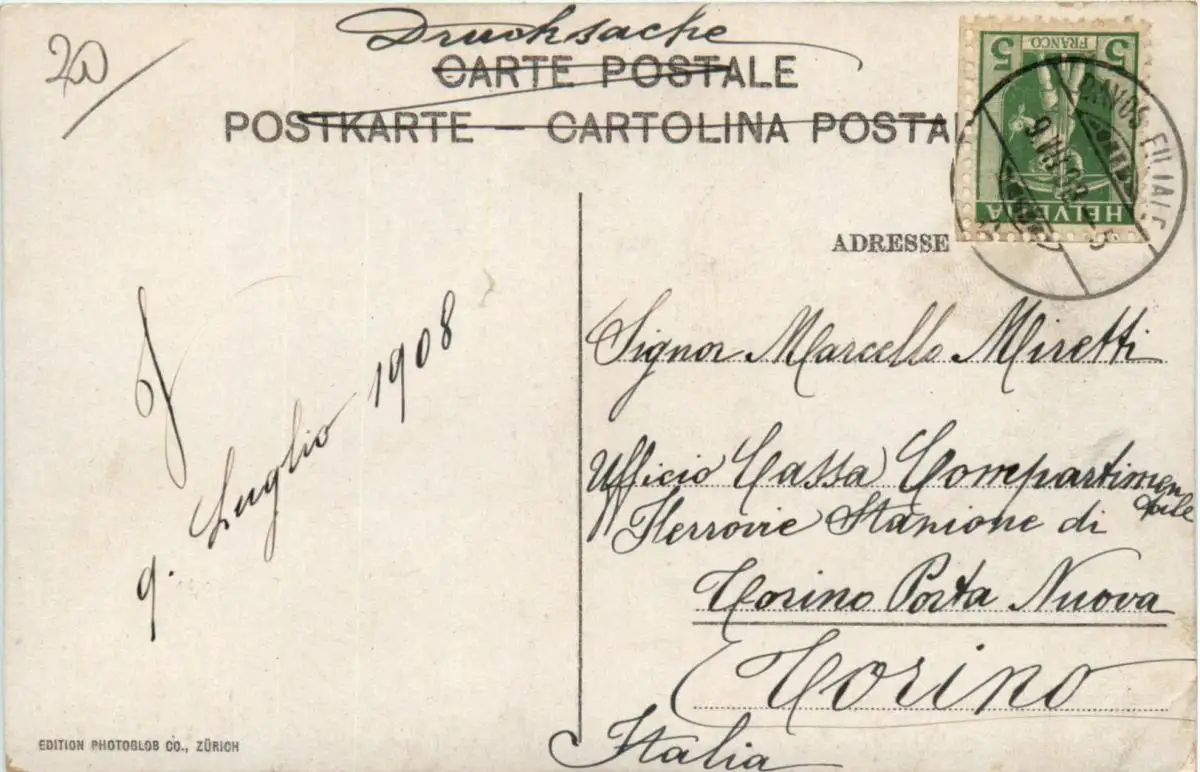 20
Drucksache
CARTE POSTALE
POSTKARTE — CARTOLINA POSTA
5 FRANCO 5
HELVETIA
DAVOS FILIALE
9.VII.08
ADRESSE
9. Luglio 1908
Signor Marcello Miretti
Ufficio Cassa Compartimen
tale
Ferrovie Stazione di
Torino Porta Nuova
Torino
Italia
EDITION PHOTOGLOB CO., ZÜRICH